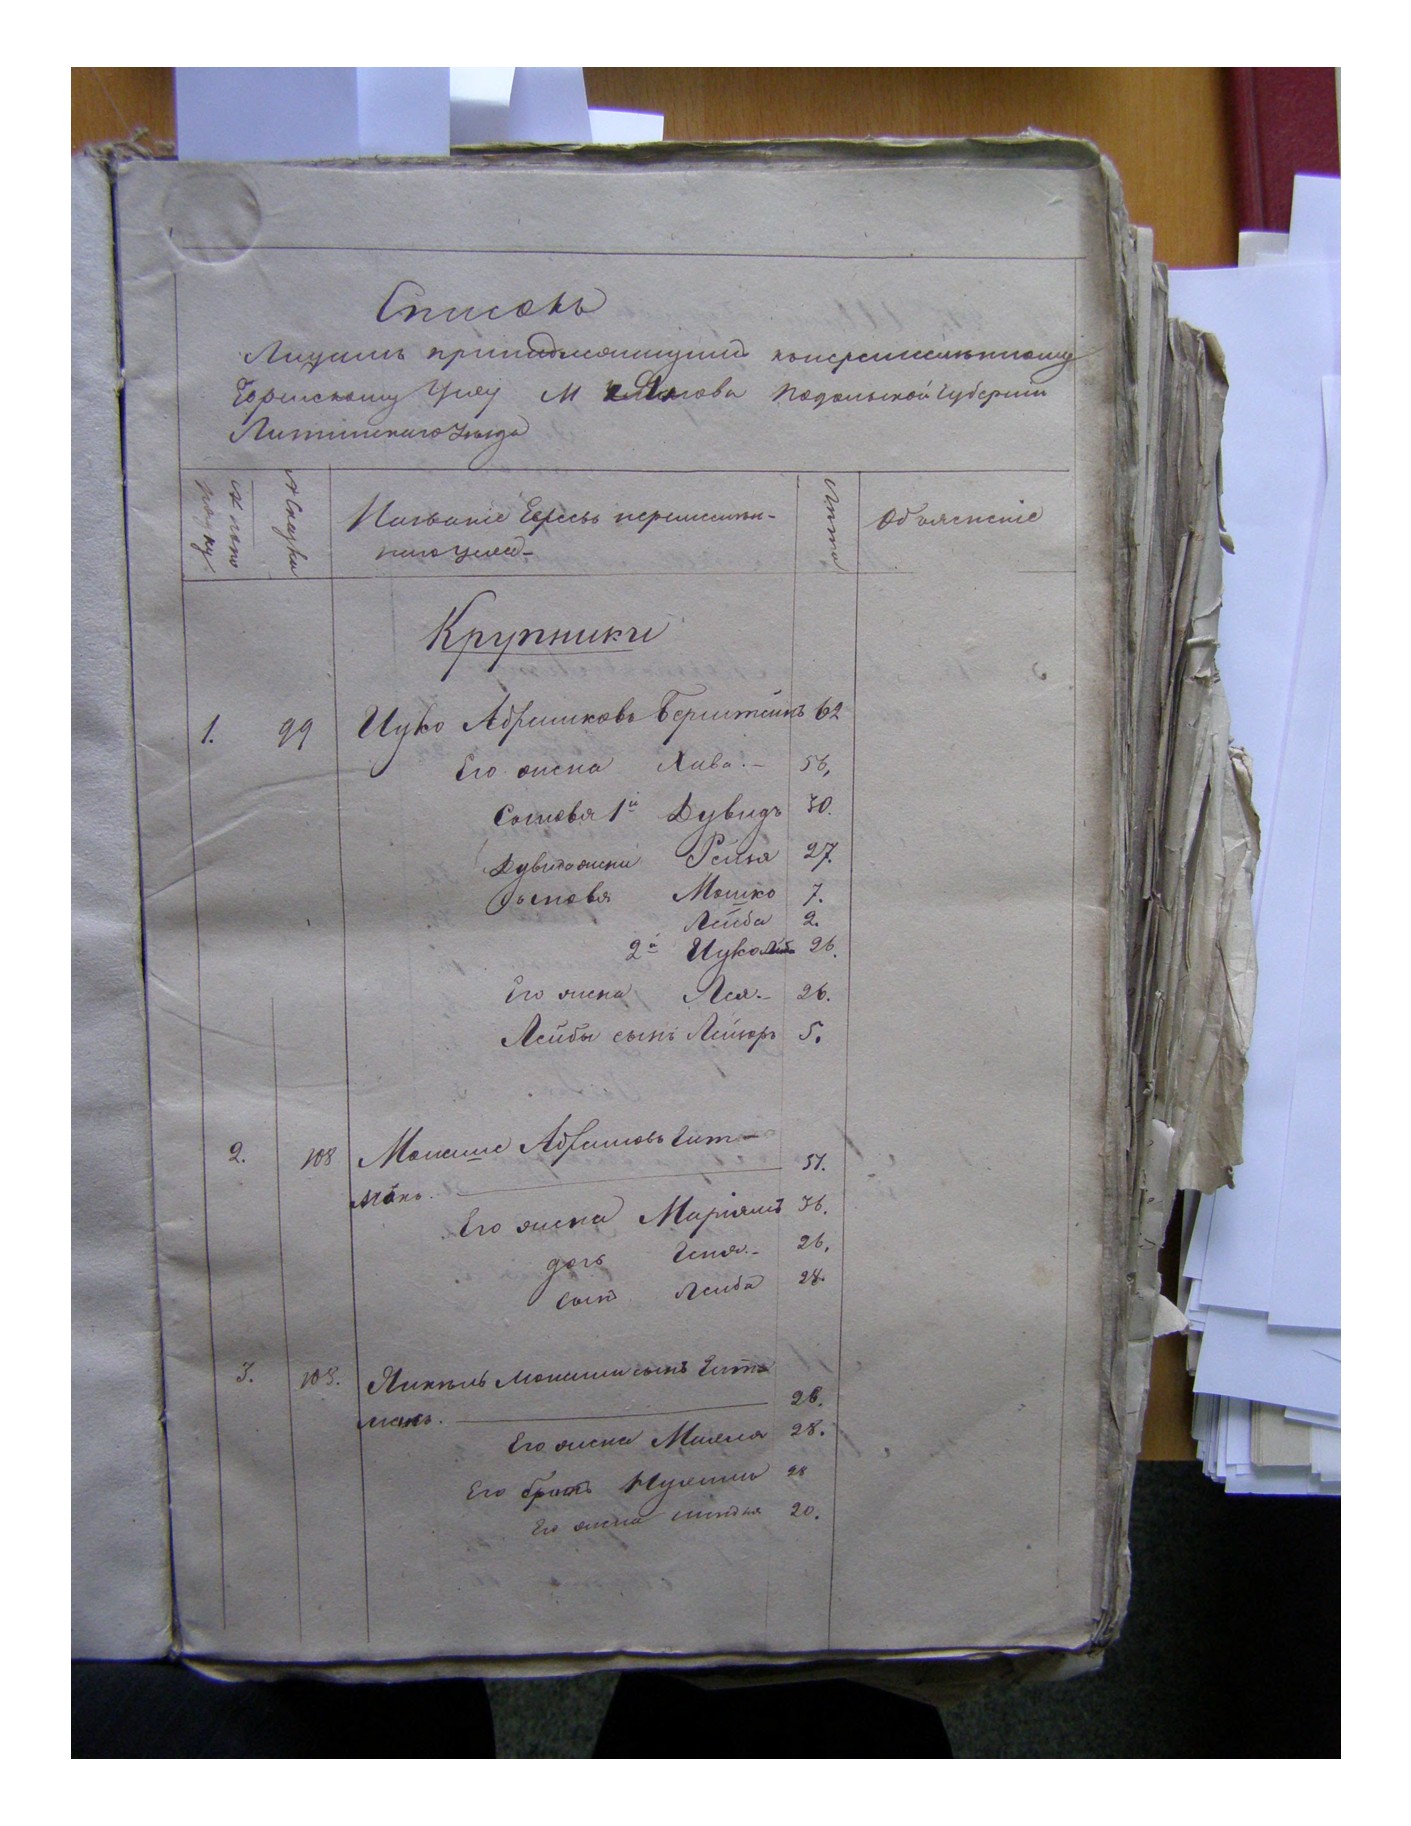 Списокъ
Лицамъ принадлежащимъ
Еврейскому Цеху М Подольской Губерніи
Литинскаго Уезда
№ по порядку
№ Сказки
Названіе Евреевъ
Цеха
Лета
Объясненіе
Крупники
1. 99 Ицко Абрамковъ Бернштейнъ 62
Его жена Хава.- 56,
Сыновья 1й Дувидъ 30.
Дувида жена Рейзя 27.
Сыновья Мошко 7.
Лейба 2.
2й Ицко 26.
Его жена Лея.- 26.
Лейбы сынъ Лейзоръ 5.
2. 108 Абрамовъ Гит-
манъ. 57.
Его жена Маріямъ 36.
дочь Геня.- 26,
сынъ Лейба 24.
3. 108. Янкель сынъ Гит-
манъ. 26.
Его жена 28.
Его братъ Нухимъ 28
Его жена 20.